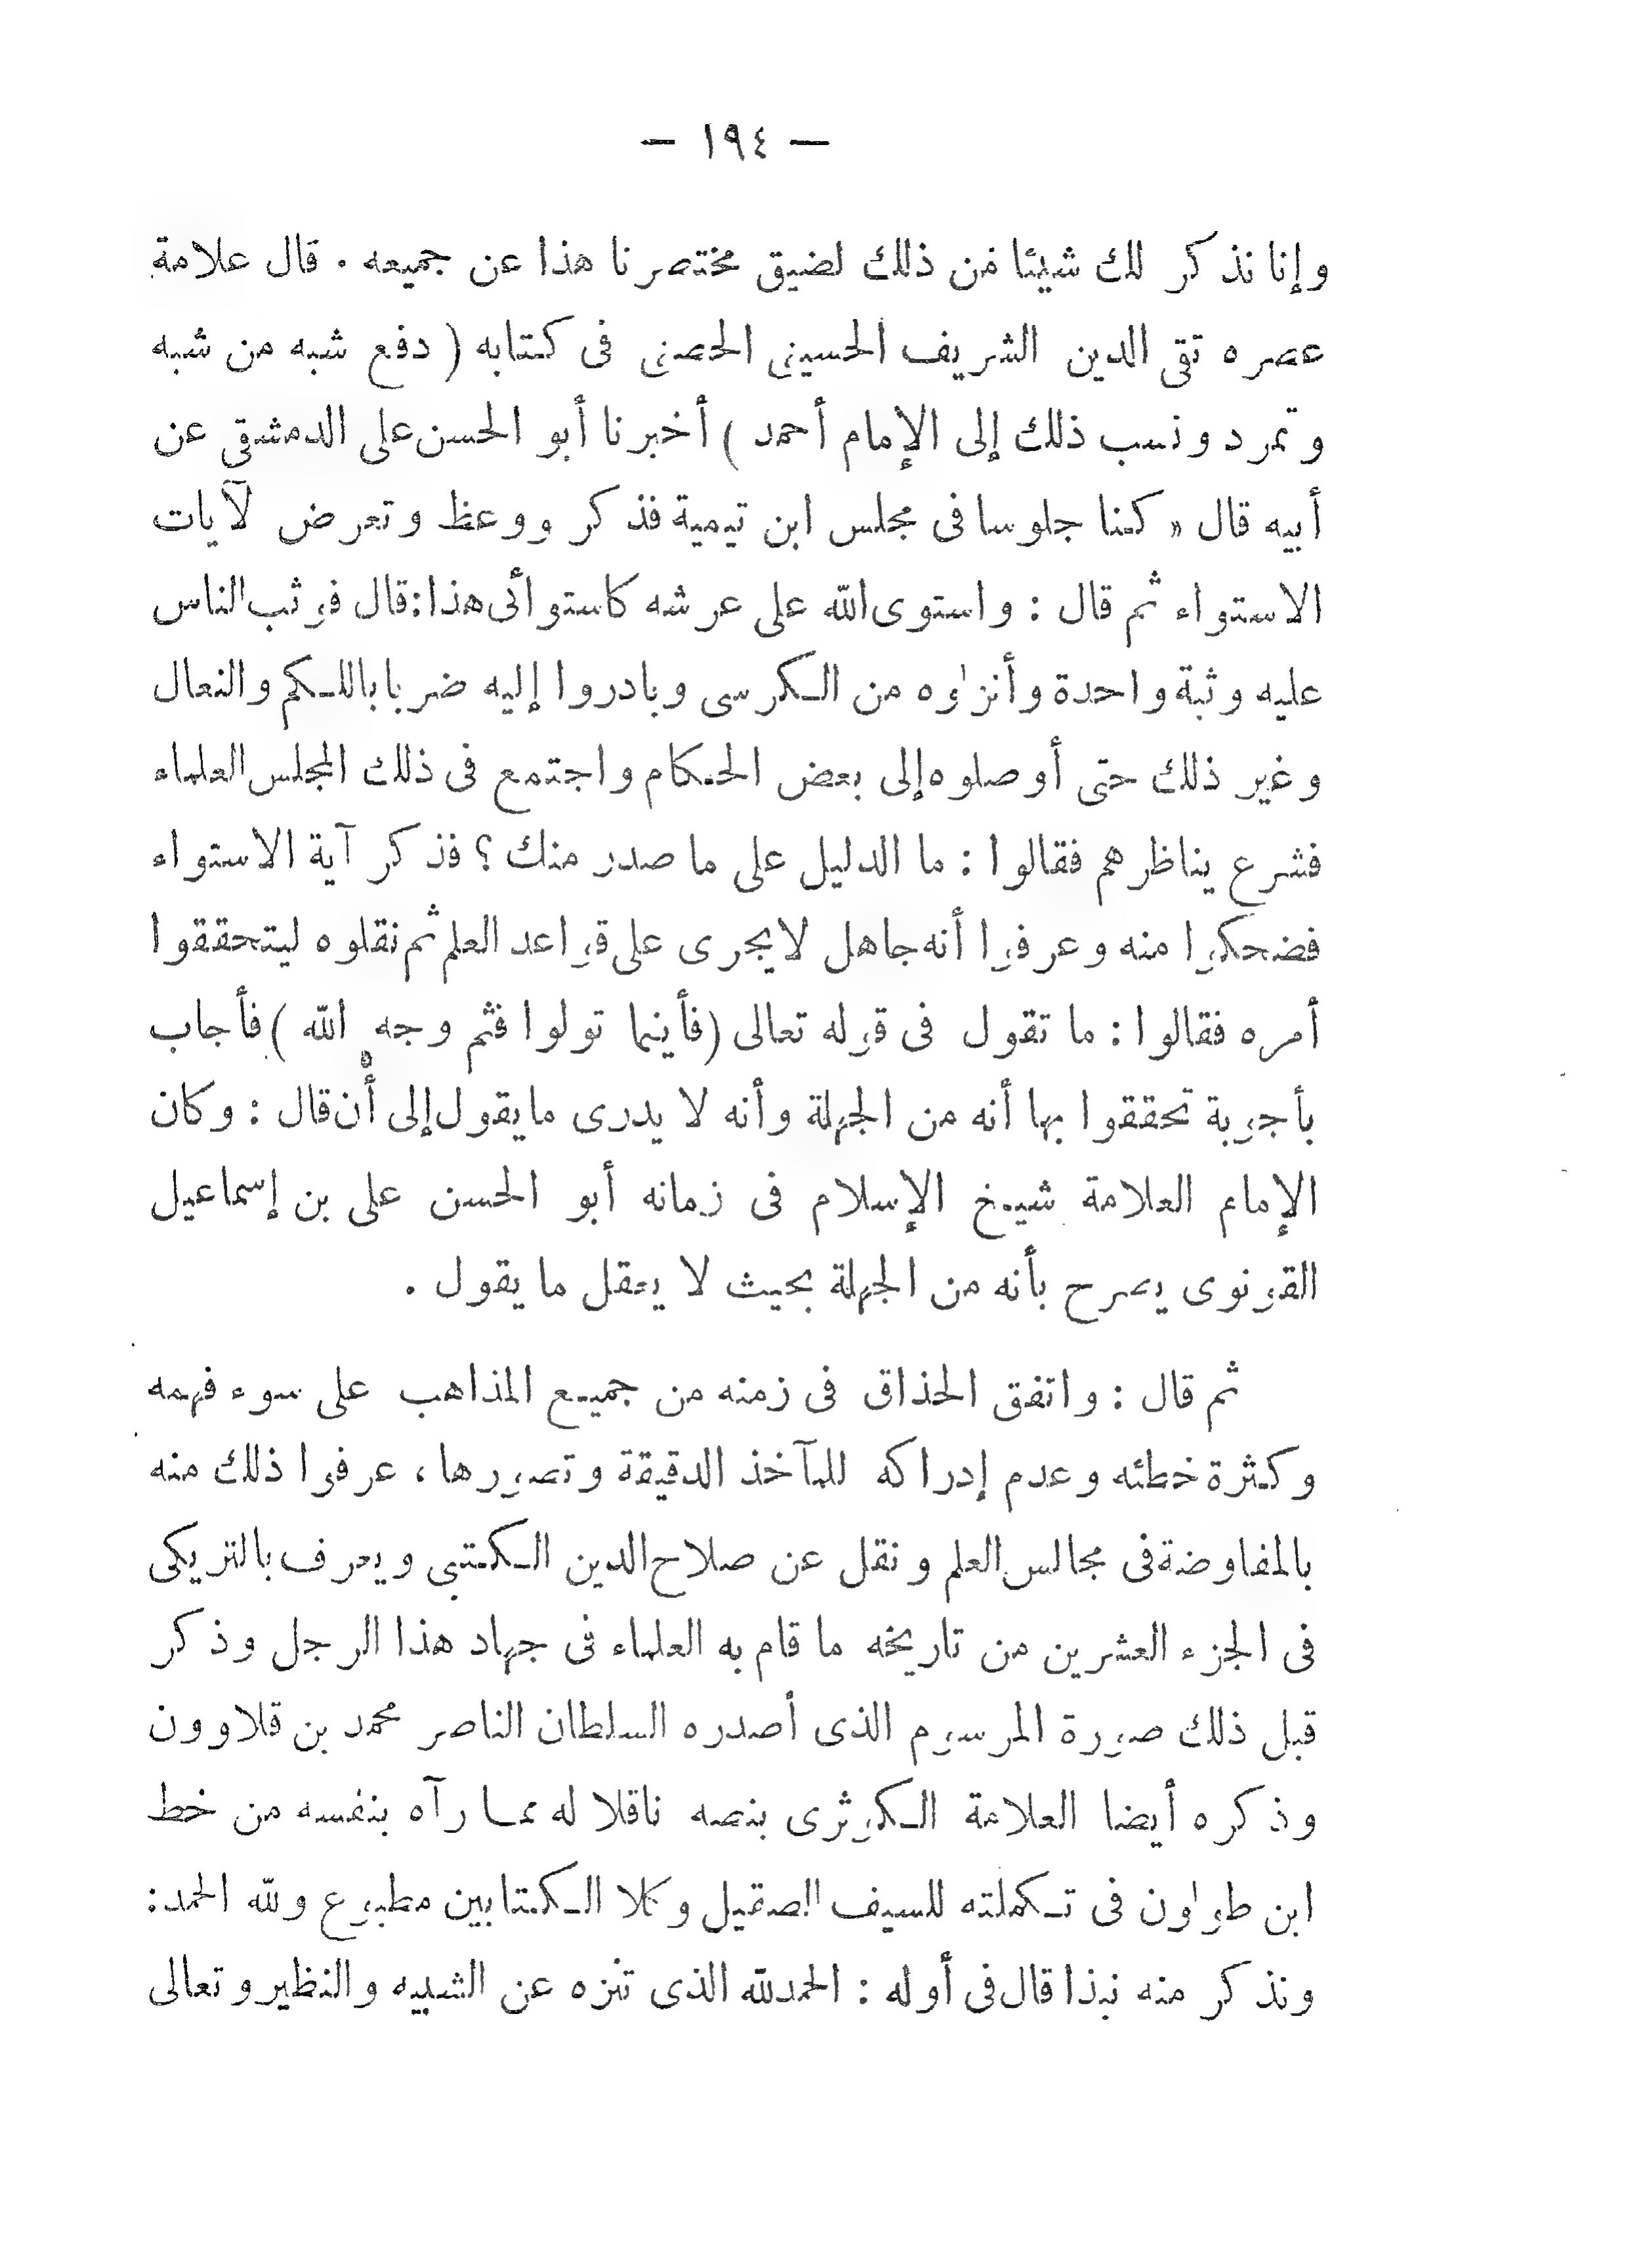 — ١٩٤ —
وإنا نذكر لك شيئا من ذلك لضيق مختصرنا هذا عن جميعه . قال علامة
عصره تقى الدين الشريف الحسينى الحصنى فى كتابه ( دفع شبه من شبه
وتمرد ونسب ذلك إلى الإمام أحمد ) أخبرنا أبو الحسن على الدمشقى عن
أبيه قال « كنا جلوسا فى مجلس ابن تيمية فذكر ووعظ وتعرض لآيات
الاستواء ثم قال : واستوى الله على عرشه كاستوائى هذا: قال فوثب الناس
عليه وثبة واحدة وأنزلوه من الكرسى وبادروا إليه ضربا باللكم والنعال
وغير ذلك حتى أوصلوه إلى بعض الحكام واجتمع فى ذلك المجلس العلماء
فشرع يناظرهم فقالوا : ما الدليل على ما صدر منك ؟ فذكر آية الاستواء
فضحكوا منه وعرفوا أنه جاهل لا يجرى على قواعد العلم ثم نقلوه ليتحققوا
أمره فقالوا : ما تقول فى قوله تعالى (فأينما تولوا فثم وجه الله ) فأجاب
بأجوبة تحققوا بها أنه من الجهلة وأنه لا يدرى ما يقول إلى أن قال : وكان
الإمام العلامة شيخ الإسلام فى زمانه أبو الحسن على بن إسماعيل
القونوى يصرح بأنه من الجهلة بحيث لا يعقل ما يقول .
ثم قال : واتفق الحذاق فى زمنه من جميع المذاهب على سوء فهمه
وكثرة خطئه وعدم إدراكه للمآخذ الدقيقة وتصورها ، عرفوا ذلك منه
بالمفاوضة فى مجالس العلم ونقل عن صلاح الدين الكتبي ويعرف بالتريكى
فى الجزء العشرين من تاريخه ما قام به العلماء فى جهاد هذا الرجل وذكر
قبل ذلك صورة المرسوم الذى أصدره السلطان الناصر محمد بن قلاوون
وذكره أيضا العلامة الكوثرى بنصه ناقلا له مما رآه بنفسه من خط
ابن طولون فى تكملته للسيف الصقيل وكلا الكتابين مطبوع ولله الحمد:
ونذكر منه نبذا قال فى أوله : الحمد لله الذى تنزه عن الشبيه والنظير وتعالى